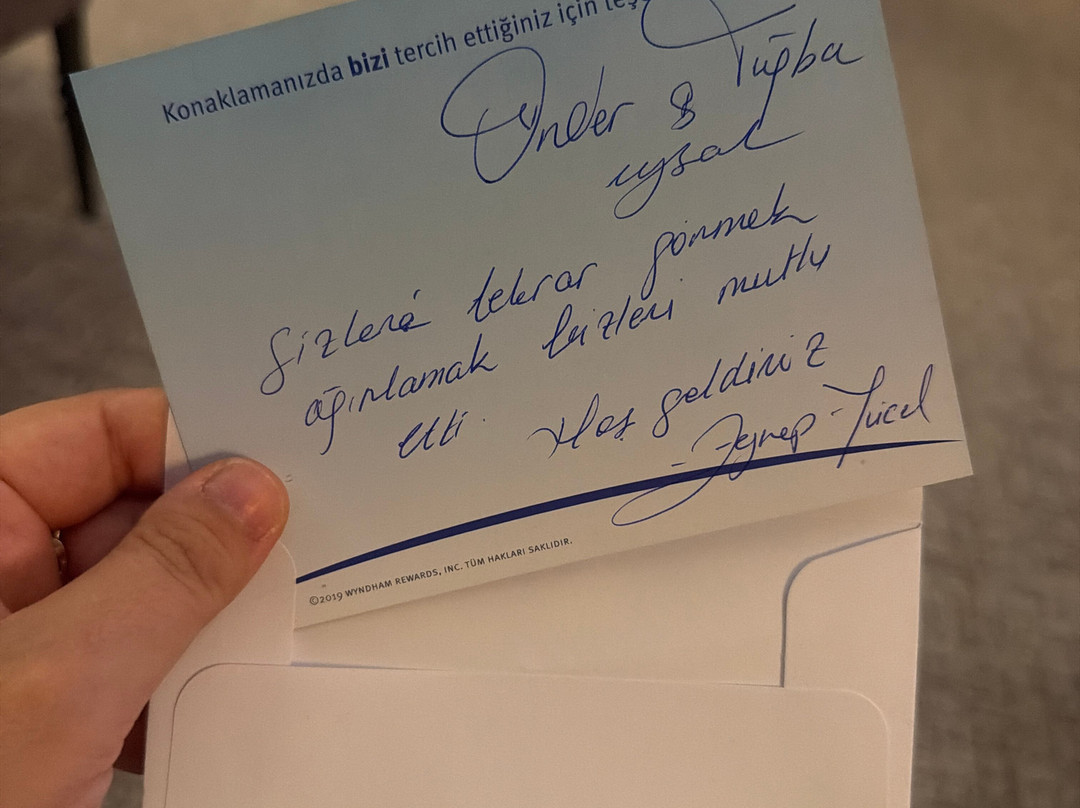 Konaklamanızda bizi tercih ettiğiniz için teş
Önder & Tuğba
uysal
Sizlerá tekrar görmek
ağırlamak bizleri mutlu
etti. Hoş geldiniz
- Zeynep Yücel
©2019 WYNDHAM REWARDS, INC. TÜM HAKLARI SAKLIDIR.